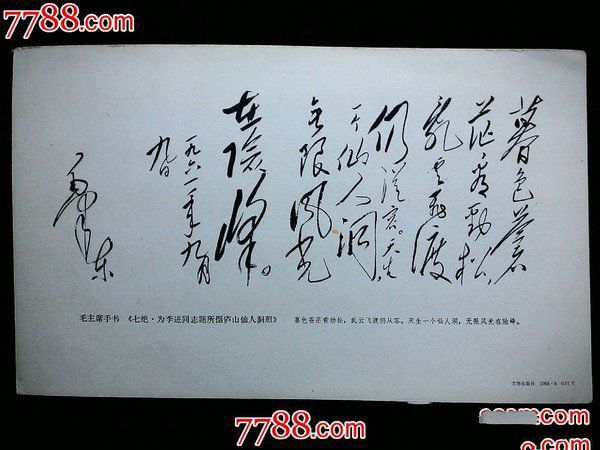 7788.com
7788.com
暮色蒼
茫看劲松,
乱云飞渡
仍從容。天生
一个仙人洞,
无限风光
在险峰。
一九六一年九月
九日
毛泽东
毛主席手书 《七绝·为李进同志题所摄庐山仙人洞照》 暮色苍茫看劲松,乱云飞渡仍从容。天生一个仙人洞,无限风光在险峰。
文物出版社
7788.com